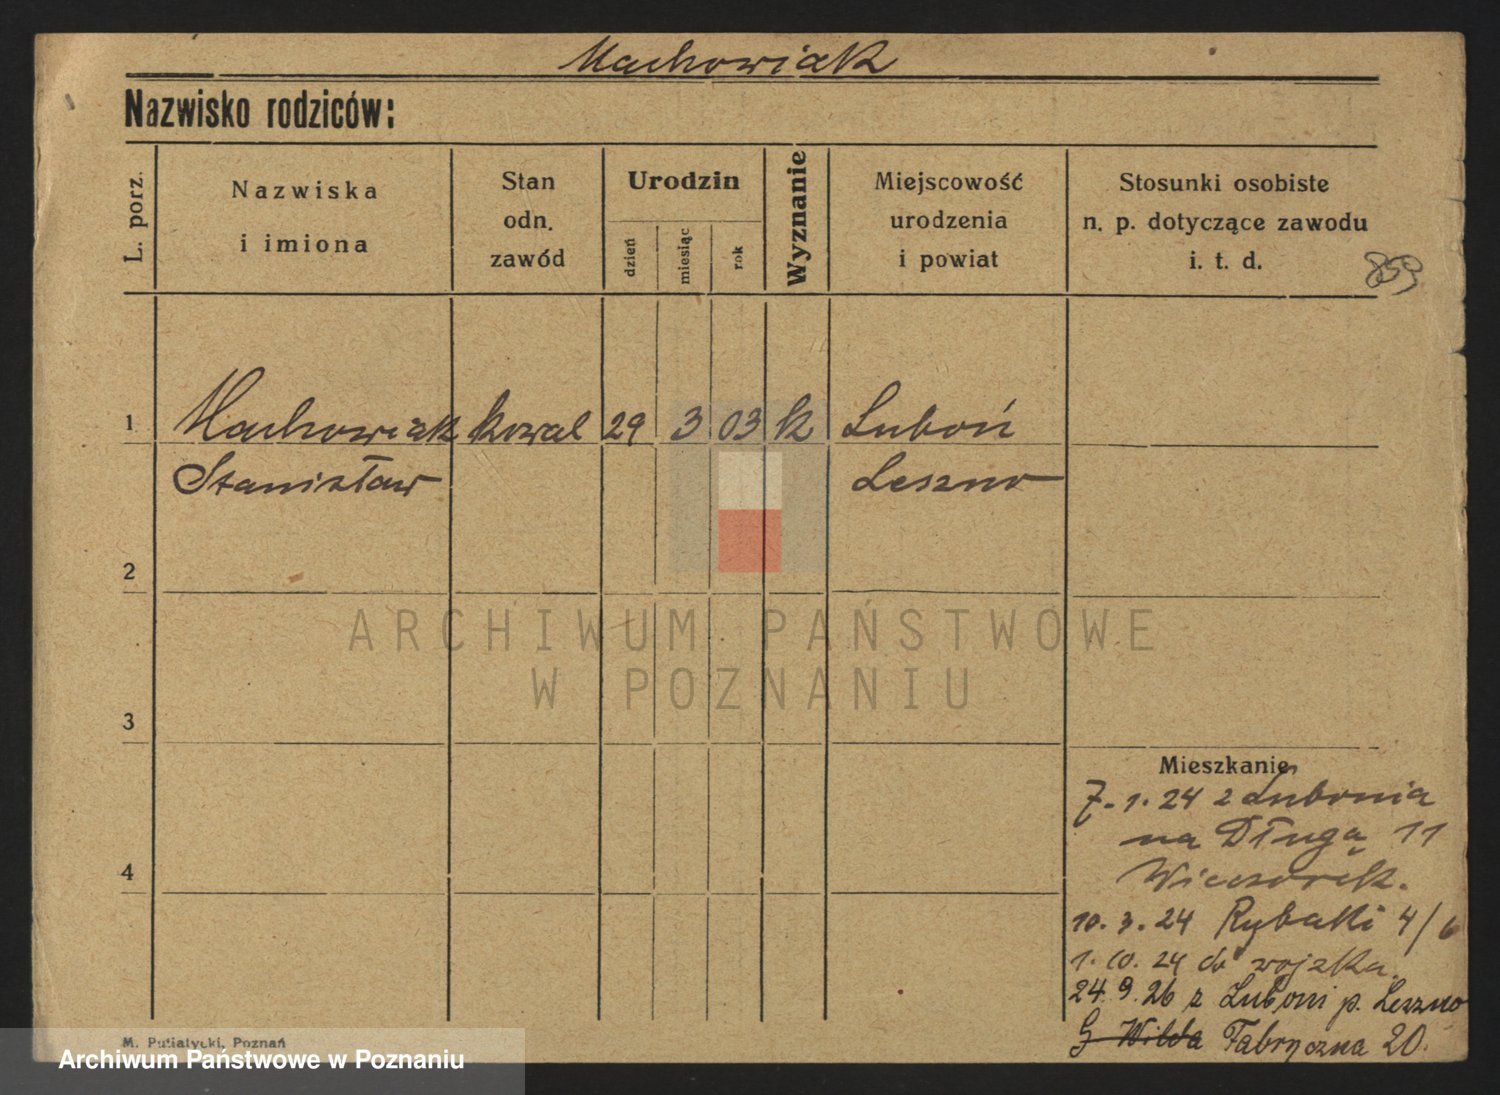 Machowiak
Nazwisko rodziców:
L. porz.
Nazwiska
i imiona
Stan
odn.
zawód
Urodzin
dzień
miesiąc
rok
Wyznanie
Miejscowość
urodzenia
i powiat
Stosunki osobiste
n. p. dotyczące zawodu
i. t. d.
859
1 Machowiak kowal 29 3 03 k Luboń
Stanisław Leszno
2
3
4
Mieszkanie
7.1.24 z Lubonia
na Długą 11
Wieczorek.
10.3.24 Rybaki 4/6
1.10.24 do wojska.
24.9.26 z Luboni p. Leszno
G Wilda Fabryczna 20.
ARCHIWUM PAŃSTWOWE
W POZNANIU
M. Putiatycki, Poznań
Archiwum Państwowe w Poznaniu